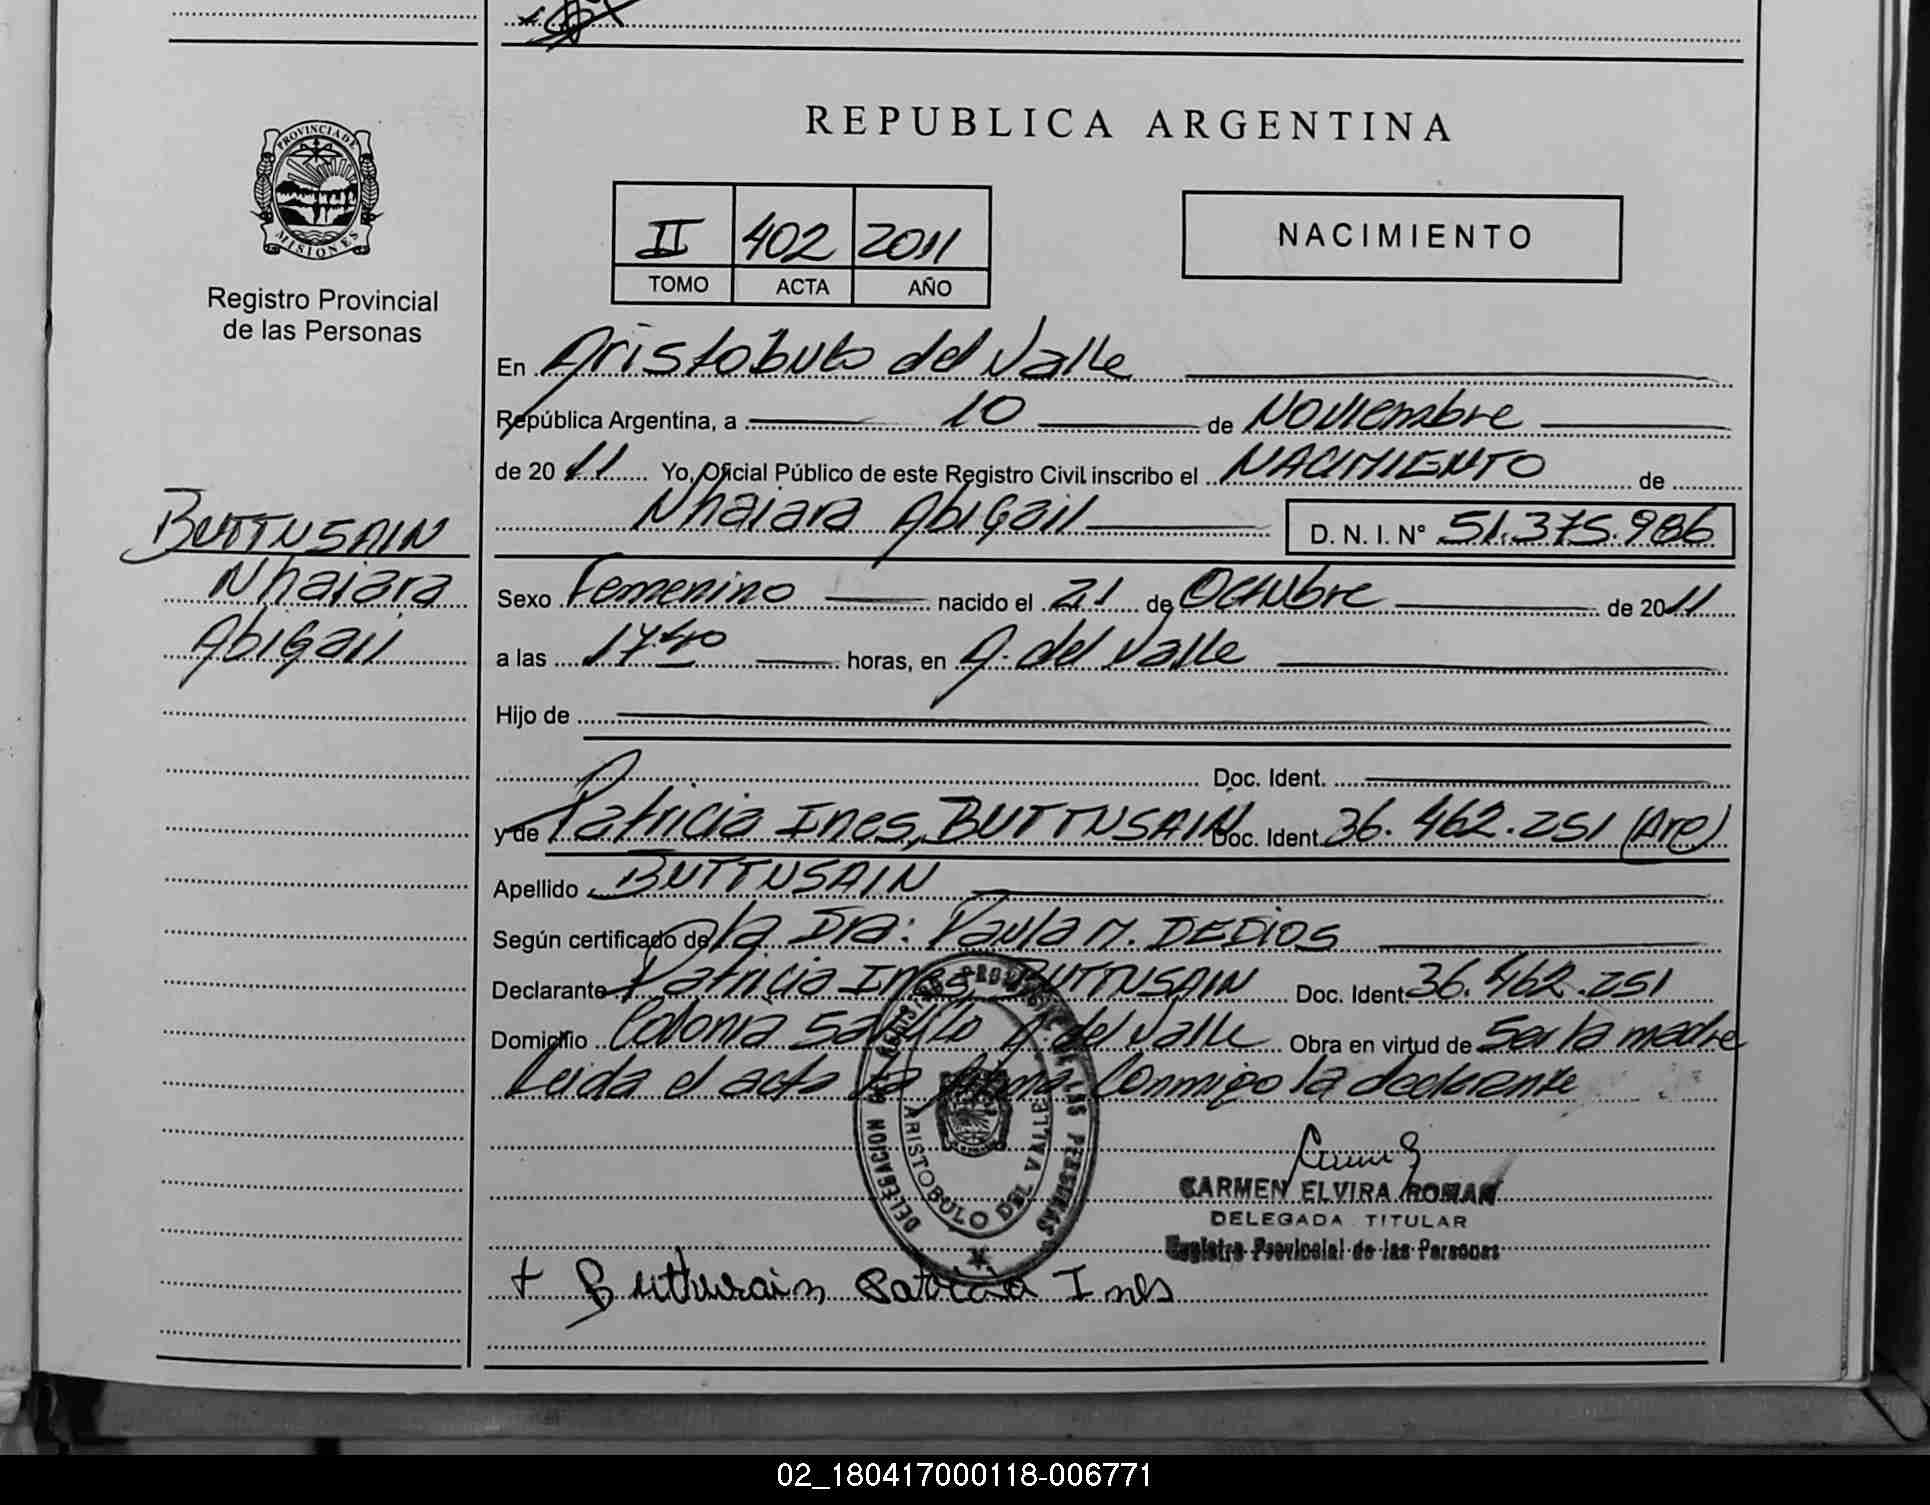 REPUBLICA ARGENTINA
PROVINCIA DE
MISIONES
Registro Provincial
de las Personas
II 402 2011
TOMO ACTA AÑO
NACIMIENTO
En Aristobulo del Valle
República Argentina, a 10 de Noviembre
de 2011 Yo, Oficial Público de este Registro Civil inscribo el NACIMIENTO de
Nhaiara Abigail D. N. I. N° 51.375.986
BUTTUSAIN
Nhaiara
Abigail
Sexo Femenino nacido el 21 de Octubre de 2011
a las 17 40 horas, en A. del Valle
Hijo de
Doc. Ident.
y de Patricia Ines, BUTTUSAIN Doc. Ident. 36.462.251 (Arg)
Apellido BUTTUSAIN
Según certificado de la Dra: Paula M. DEDIOS
Declarante Patricia Ines, BUTTUSAIN Doc. Ident. 36.462.251
Domicilio Colonia Saltito A. del Valle Obra en virtud de Ser la madre
Leida el acta la firma Conmigo la declarante
DELEGACION DEL REGISTRO PROVINCIAL DE LAS PERSONAS
ARISTOBULO DEL VALLE
CARMEN ELVIRA ROMAN
DELEGADA TITULAR
Registro Provincial de las Personas
+ Butturain Patricia Ines
02_180417000118-006771